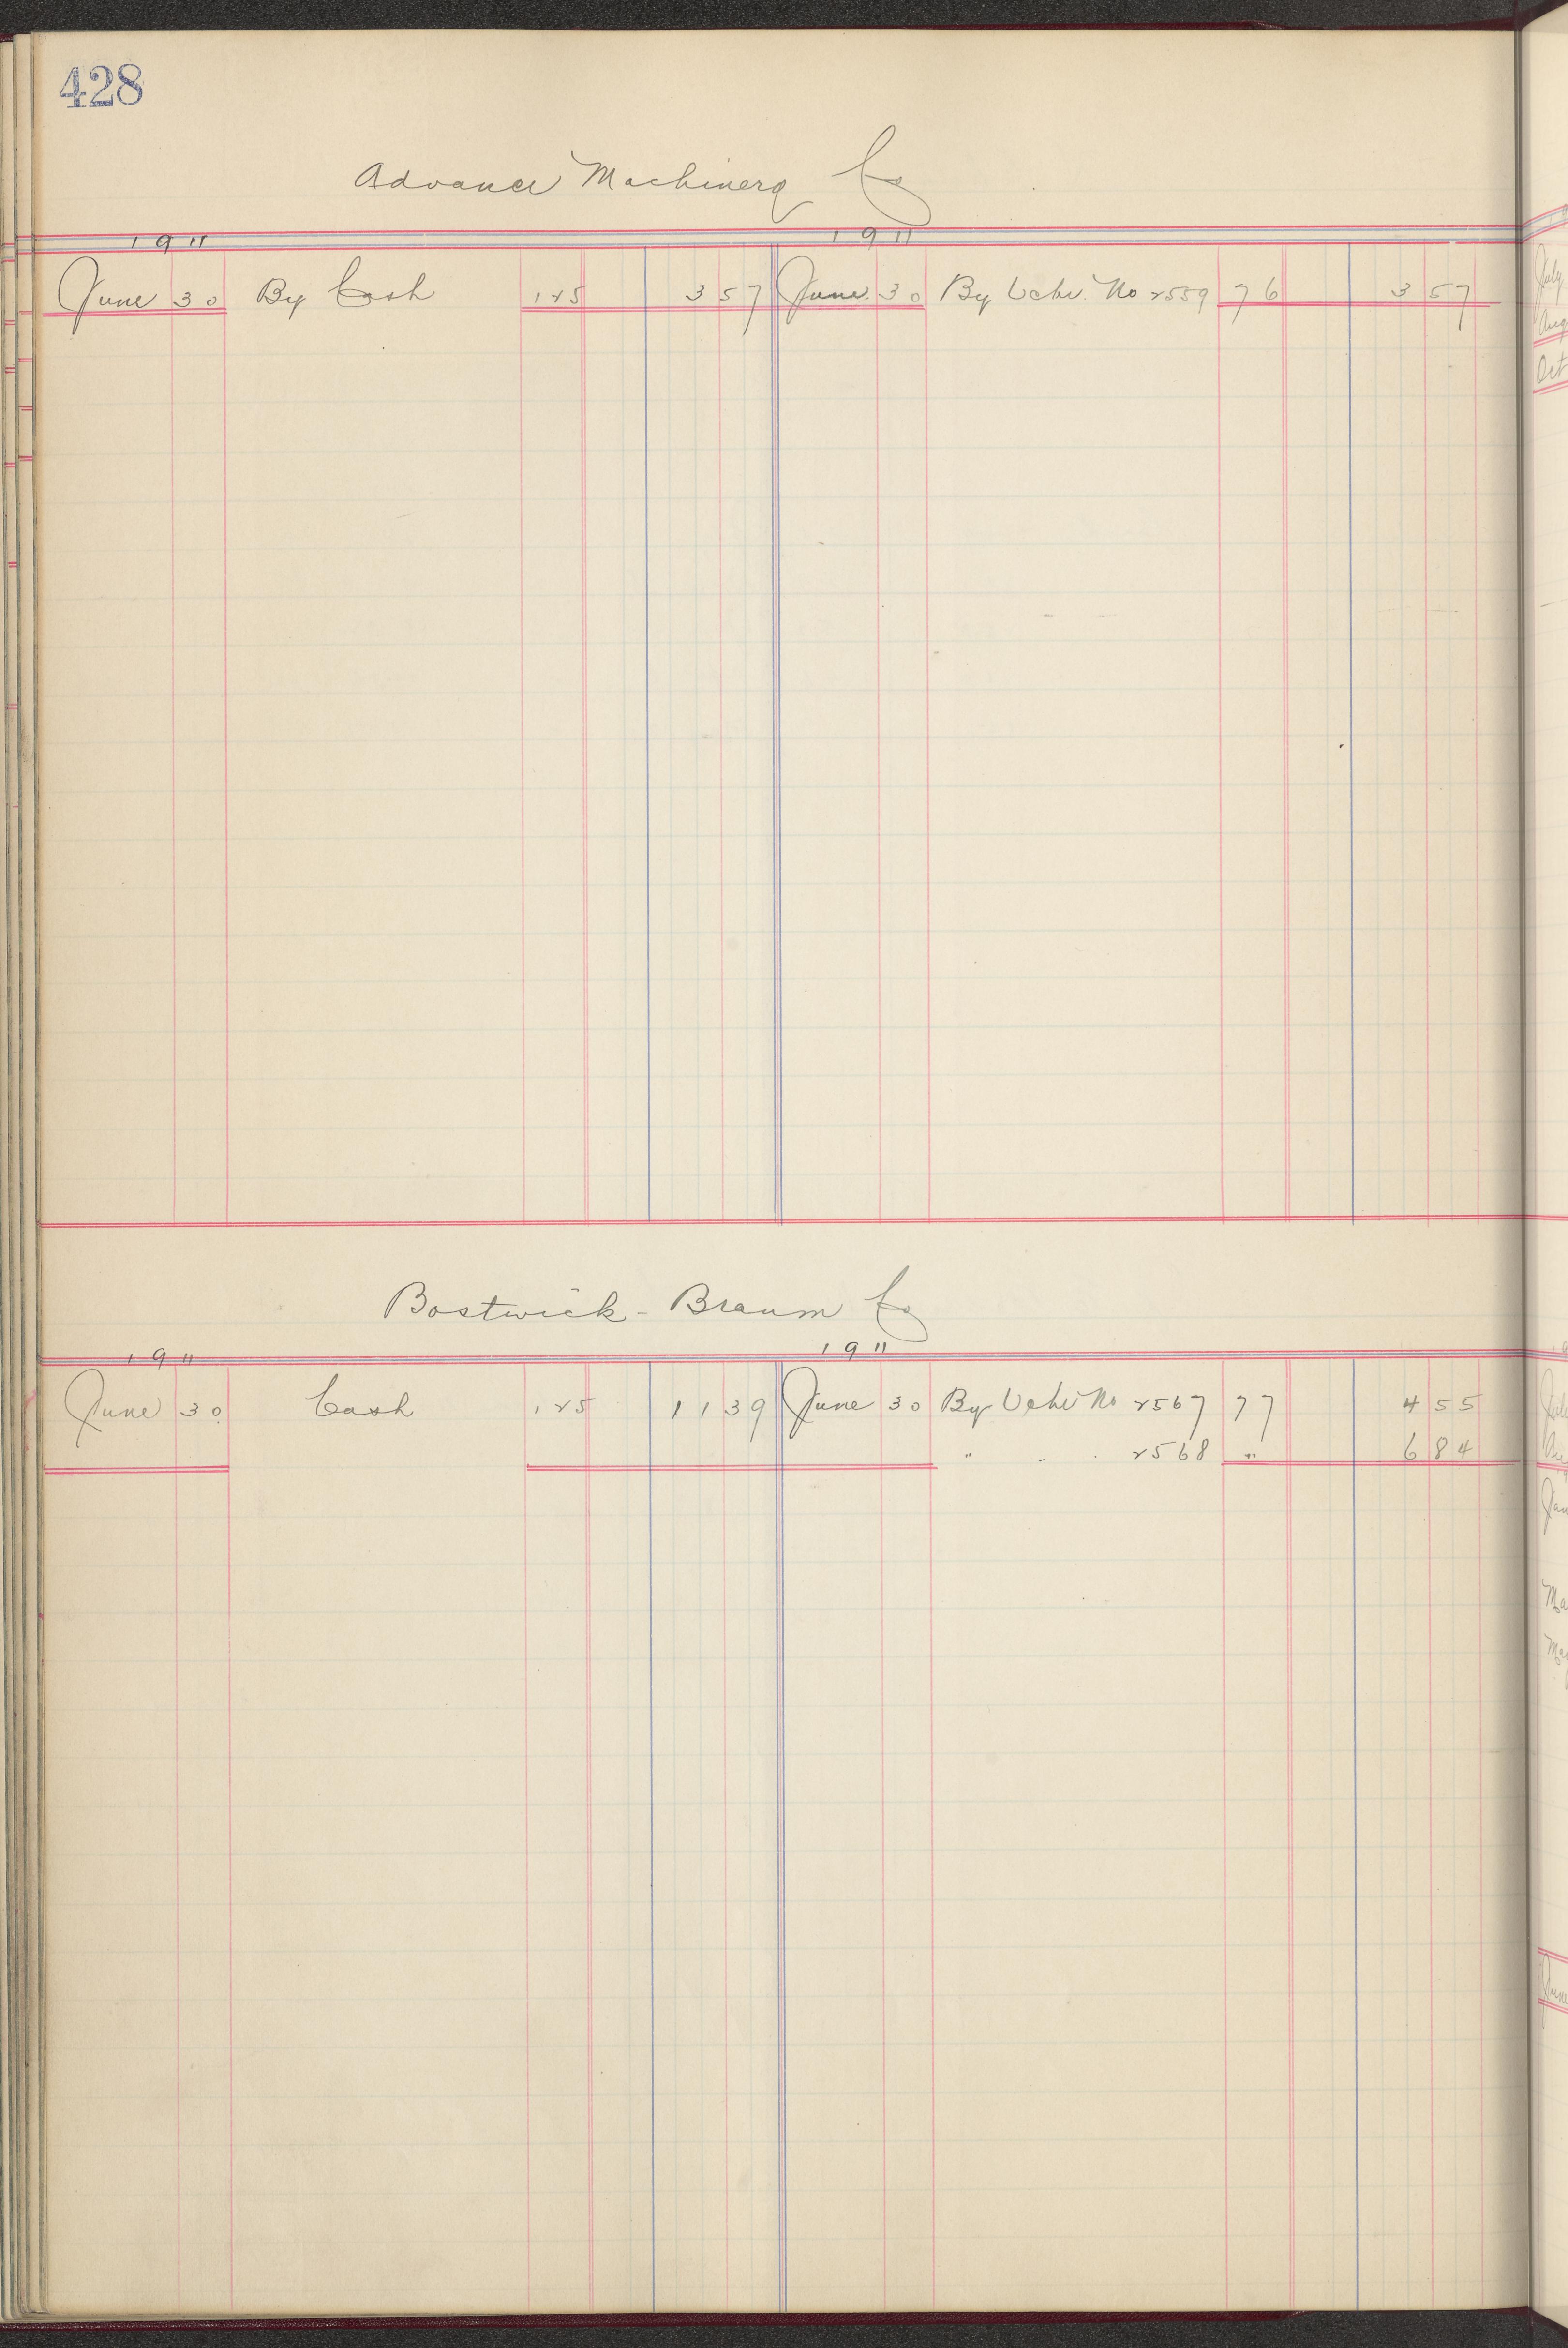 428
Advance Machinery Co
1911 1911
June 30 By Cash 125 3 57 June 30 By Vchr. No 2559 76 3 57
Bostwick-Braum Co
1911 1911
June 30 Cash 125 11 39 June 30 By Vchr No 2567 77 4 55
" " " 2568 " 6 84
July
Aug
Oct